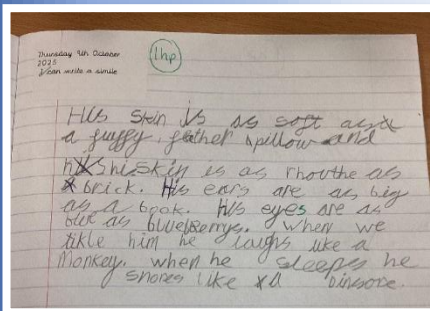 Thursday 9th October
2025
I can write a simile
1hp
His skin is as soft as
a fuffy feather pillow and
his skin is as rhouthe as
a brick. His ears are as big
as a book. His eyes are as
blue as blueberrys. When we
tikle him he laughs like a
Monkey. when he sleeps he
snores like a dinsore.